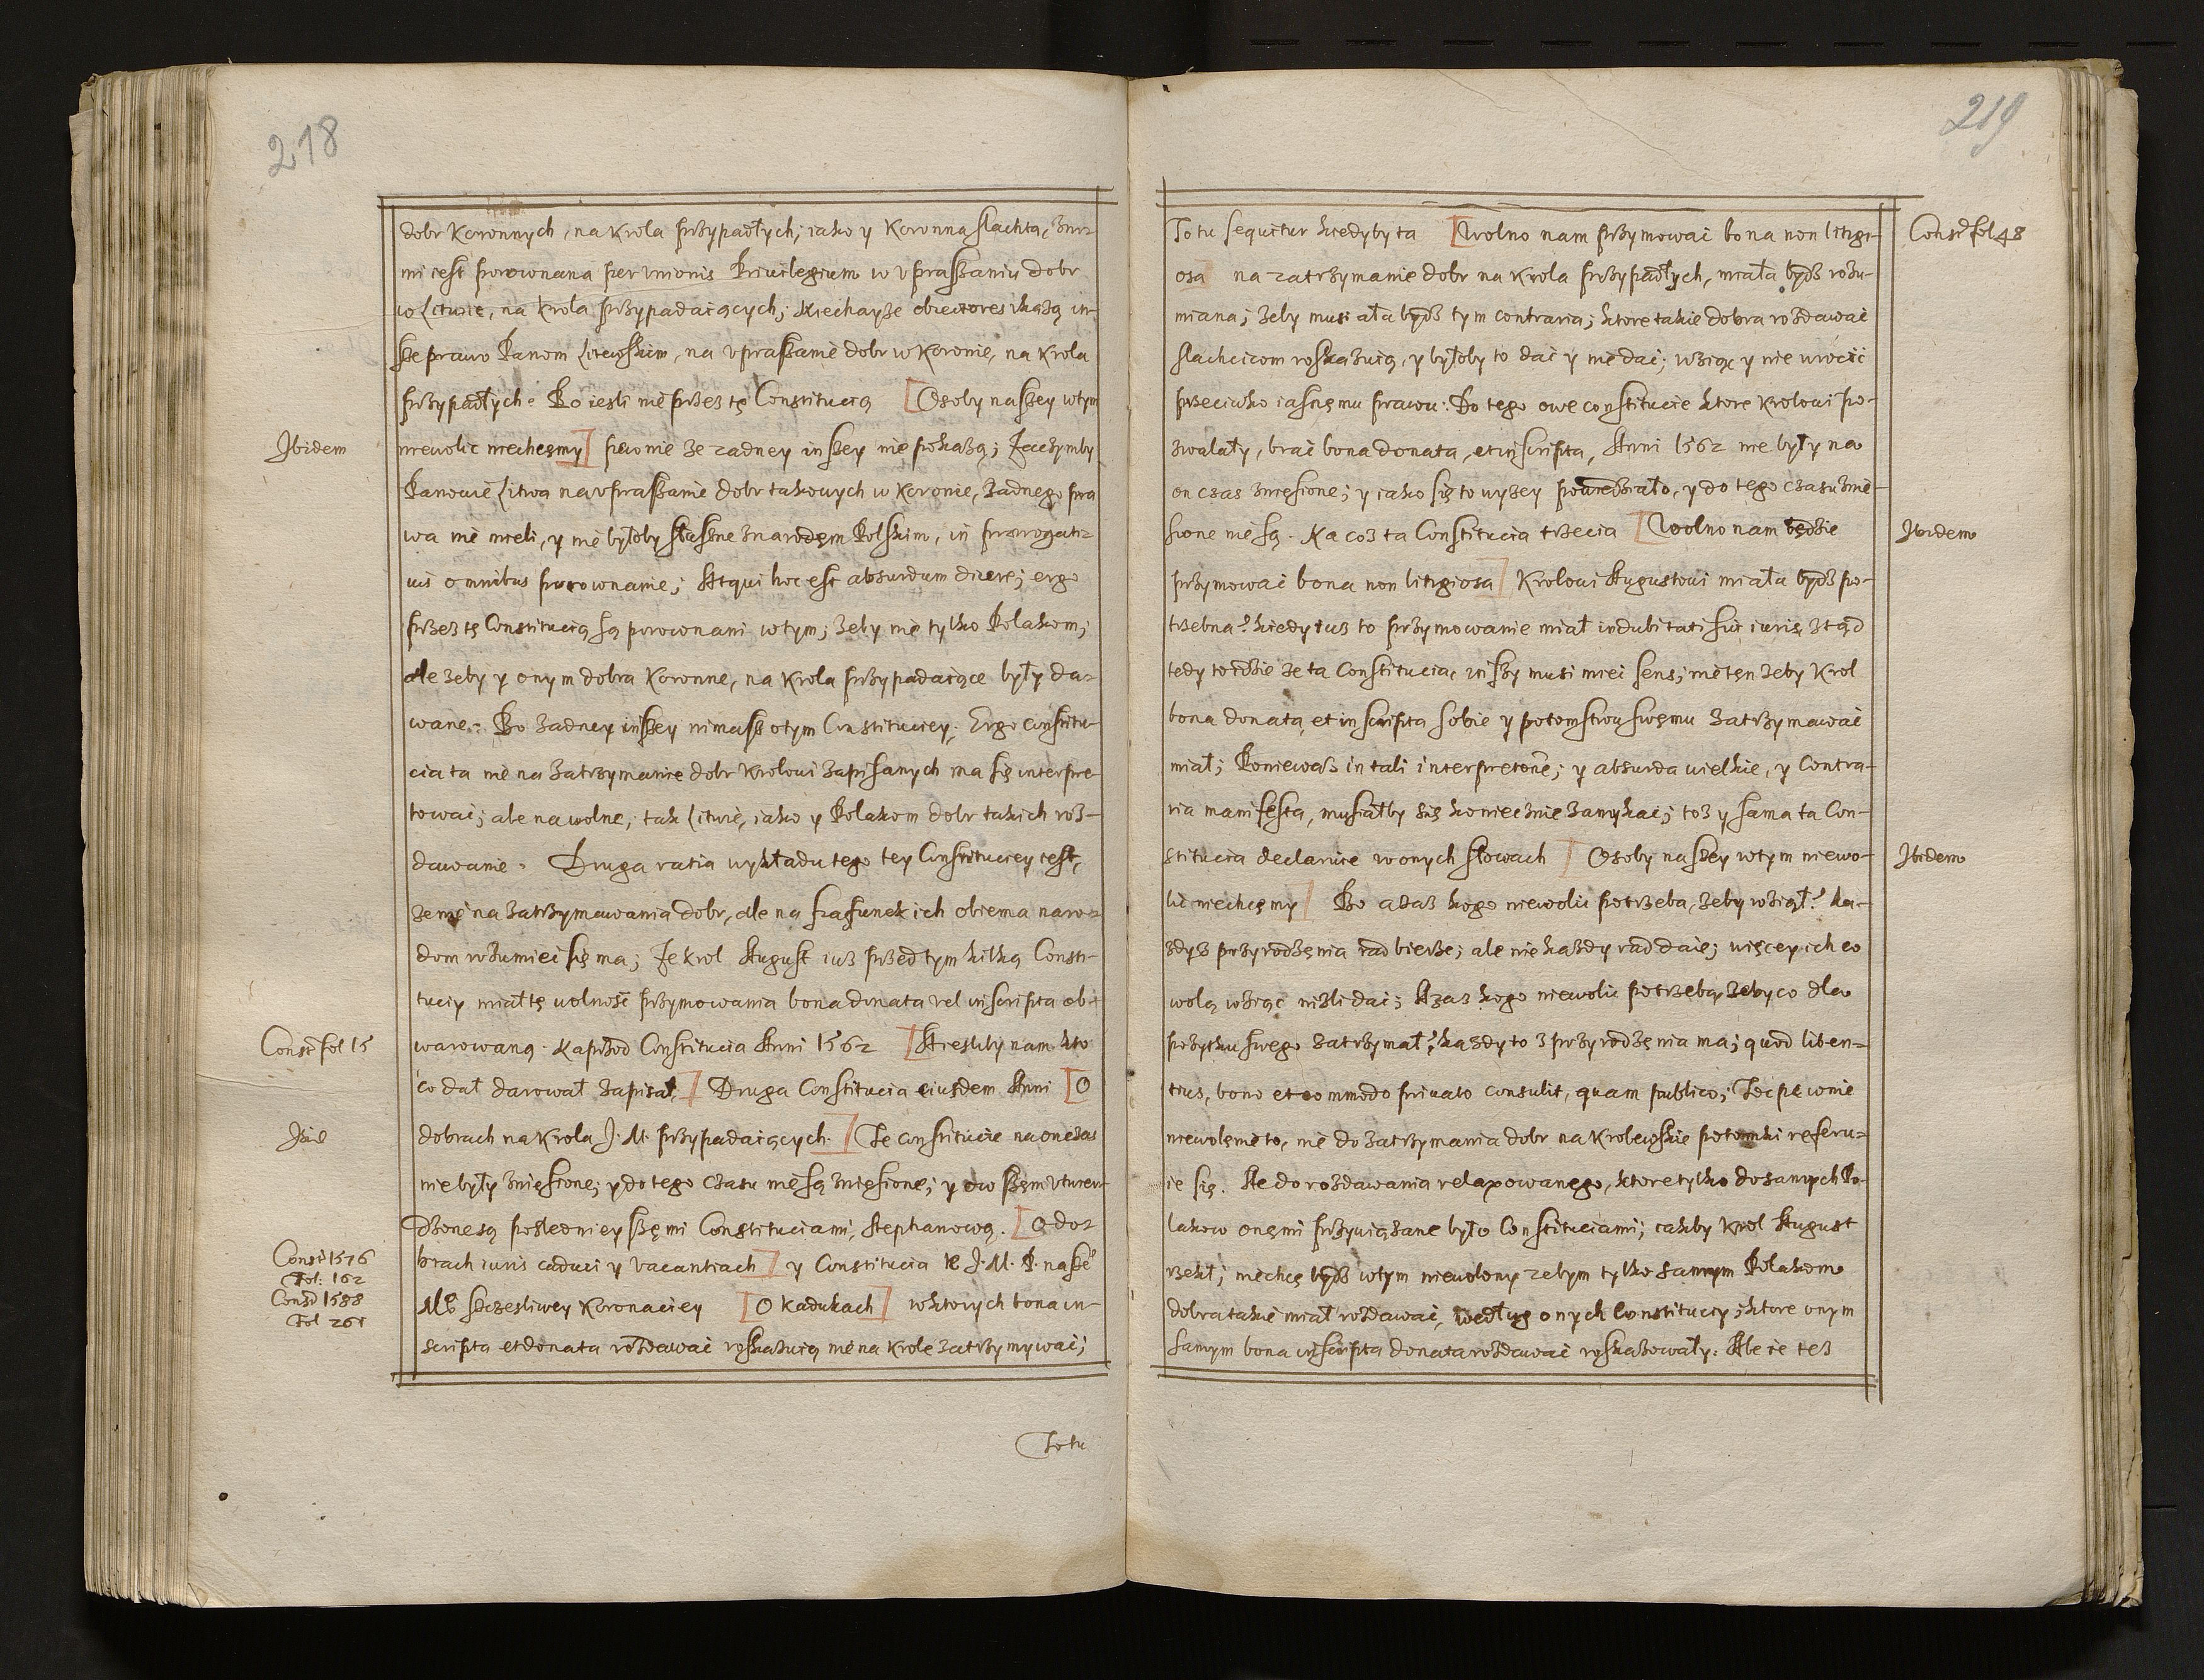 218
dobr Koronnych, na Krola przypadłych; iako y Koronna slachta, zni=
mi iest porownana per vnionis Priuilegium w vpraszaniu dobr
w Litwie, na Krola przypadaiących; Niechayże obiectores ukażą in-
sze prawo Panom Litewskim, na vpraszanie dobr w Koronie, na Krola
przypadłych? Bo iesli nie przez tę Constitucią [Osoby naszey wtym
Ibidem
niewolic niechcęmy] pewnie ze zadney inszey nie pokażą; Zaczymby
Panowie Litwa na vpraszanie dobr takowych w Koronie, żadnego pra
wa nie mieli, y nie byłoby słuszne z narodęm Polskim, in prerogati=
uis omnibus porownanie; Atqui hoc est absurdum dicere; ergo
przez tę Constitucią są porownani wtym; zeby nie tylko Polakom;
ale zeby y onym dobra Koronne, na Krola przypadaiące były da=
wane. Bo żadney inszey nimasz otym Constituciey; Ergo constitu-
cia ta nie na zatrzymanie dobr Krolowi zapisanych ma się interpre
towac; ale na wolne, tak Litwie, iako y Polakom dobr takich roz-
dawanie. Druga ratia wykładu tego tey Constituciey iest,
ze nie na zatrzymawania dobr, ale na szafunek ich obiema naro=
dom rozumiec się ma; Ze krol August iuz przed tym kilką Consti-
tuciy miał tę wolność przymowania bona donata vel inscripta ob=
Const fol 15
warowaną. Naprzod Constitucia Anni 1562 [A iesliby nam kto
co dał darował zapisał,] Druga Constitucia eiusdem Anni [O
Ibid
dobrach na Krola J. M. przypadaiących.] Te constitucie na on czas
nie były zniesione; y do tego czasu nie są zniesione; y ow szem vtwier
dzone są posledniey szęmi Constituciami, Stephanową. [O do=
Const 1576
fol: 162
brach iuris caduci y vacantiach] y Constitucia K J. M. P. naszeº
Const 1588
fol 261
Mº szczesliwey Koronaciey [O Kadukach] wktorych bona in-
scripta et donata rozdawac roskazuią nie na krole zatrzymywac;
Totu
219
Totu sequitur kiedyby ta [Wolno nam przymowac bona non litigi-
Const fol 48
osa na zatrzymanie dobr na Krola przypadłych, miała bydz rozu-
miana; żeby musi ała bydz tym contraria; ktore takie dobra rozdawac
slachcicom roskazuią, y byłoby to dac y nie dac; wziąc y nie wrocic
przeciwko iasnęmu prawu. Do tego owe constitucie ktore Krolowi po-
zwalały, brac bona donata, et inscripta, Anni 1562 nie były na
on czas zniesione; y iako się to wyzey powiedziało, y do tego czasu znie-
sione nie są. Na coz ta Constitucia trzecia [Wolno nam będzie
Ibidem
przymowac bona non litigiosa] Krolowi Augustowi miała bydz po-
trzebna? kiedy iuz to przymowanie miał indubitati sui iuris, ztąd
tedy to idzie ze ta Constitucia, inszy musi miec sens; nie ten zeby Krol
bona donata, et inscripta sobie y potomstwu swęmu zatrzymawac
miał; Poniewasz in tali interpretone; y absurda wielkie, y Contra-
ria manifesta, musiałby się koniecznie zamykac; toz y sama ta Con-
stitucia declaruie w onych słowach [Osoby naszey wtym niewo-
Ibidem
lic niechcęmy] Bo azaz kogo niewolic potrzeba, żeby wziął? ka-
zdyz przyrodzęnia rad bierze; ale nie kazdy rad daie; więcey ich co
wolą wziąc niżli dac; Azaz kogo niewolic potrzeba, żeby co dla
pożytku swego zatrzymał? kazdy to z przyrodzęnia ma; quod liben=
tius, bono et commodo priuato consulit, quam publico; Toc pewnie
niewolęnie to, nie do zatrzymania dobr na Krolewskie potomki referu=
ie się. Ale do rozdawania relaxowanego, ktore tylko do samych Po-
lakow onęmi przywiązane było Constituciami; iakby Krol August
rzekł; niechcę bydz wtym niewolony zebym tylko samym Polakom
dobra takie miał rozdawac, według onych Constituciy, ktore onym
samym bona inscripta donata rozdawac roskazowały: Ale ie tez